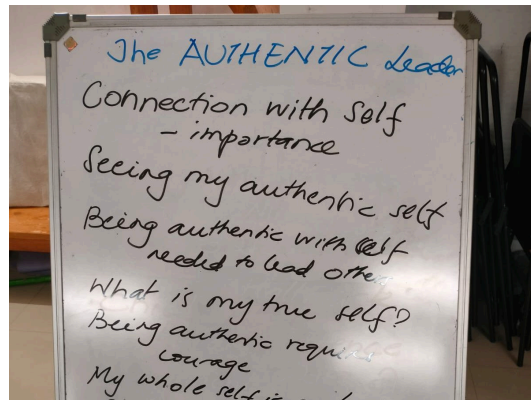 The AUTHENTIC Leader
Connection with Self
- importance
Seeing my authentic self
Being authentic with self
needed to lead others
What is my true self?
Being authentic requires
courage
My whole self is